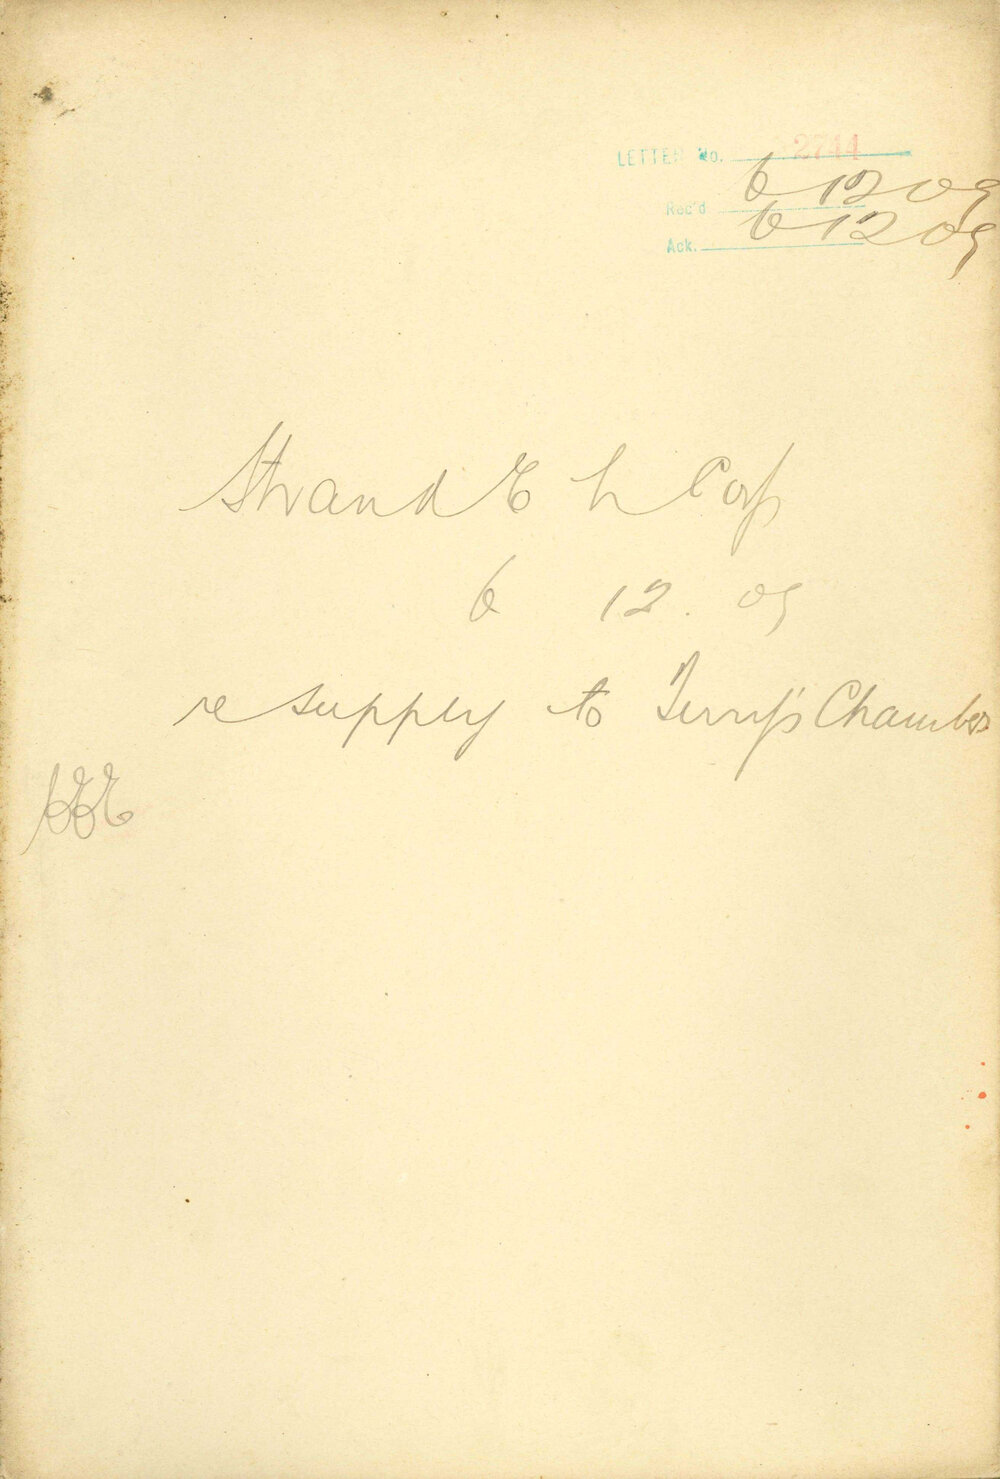 LETTER No. 2744
Rec'd 6 12 09
Ack. 6 12 09
Strand E L Corp
6 12. 09
re supply to Terry's Chambers